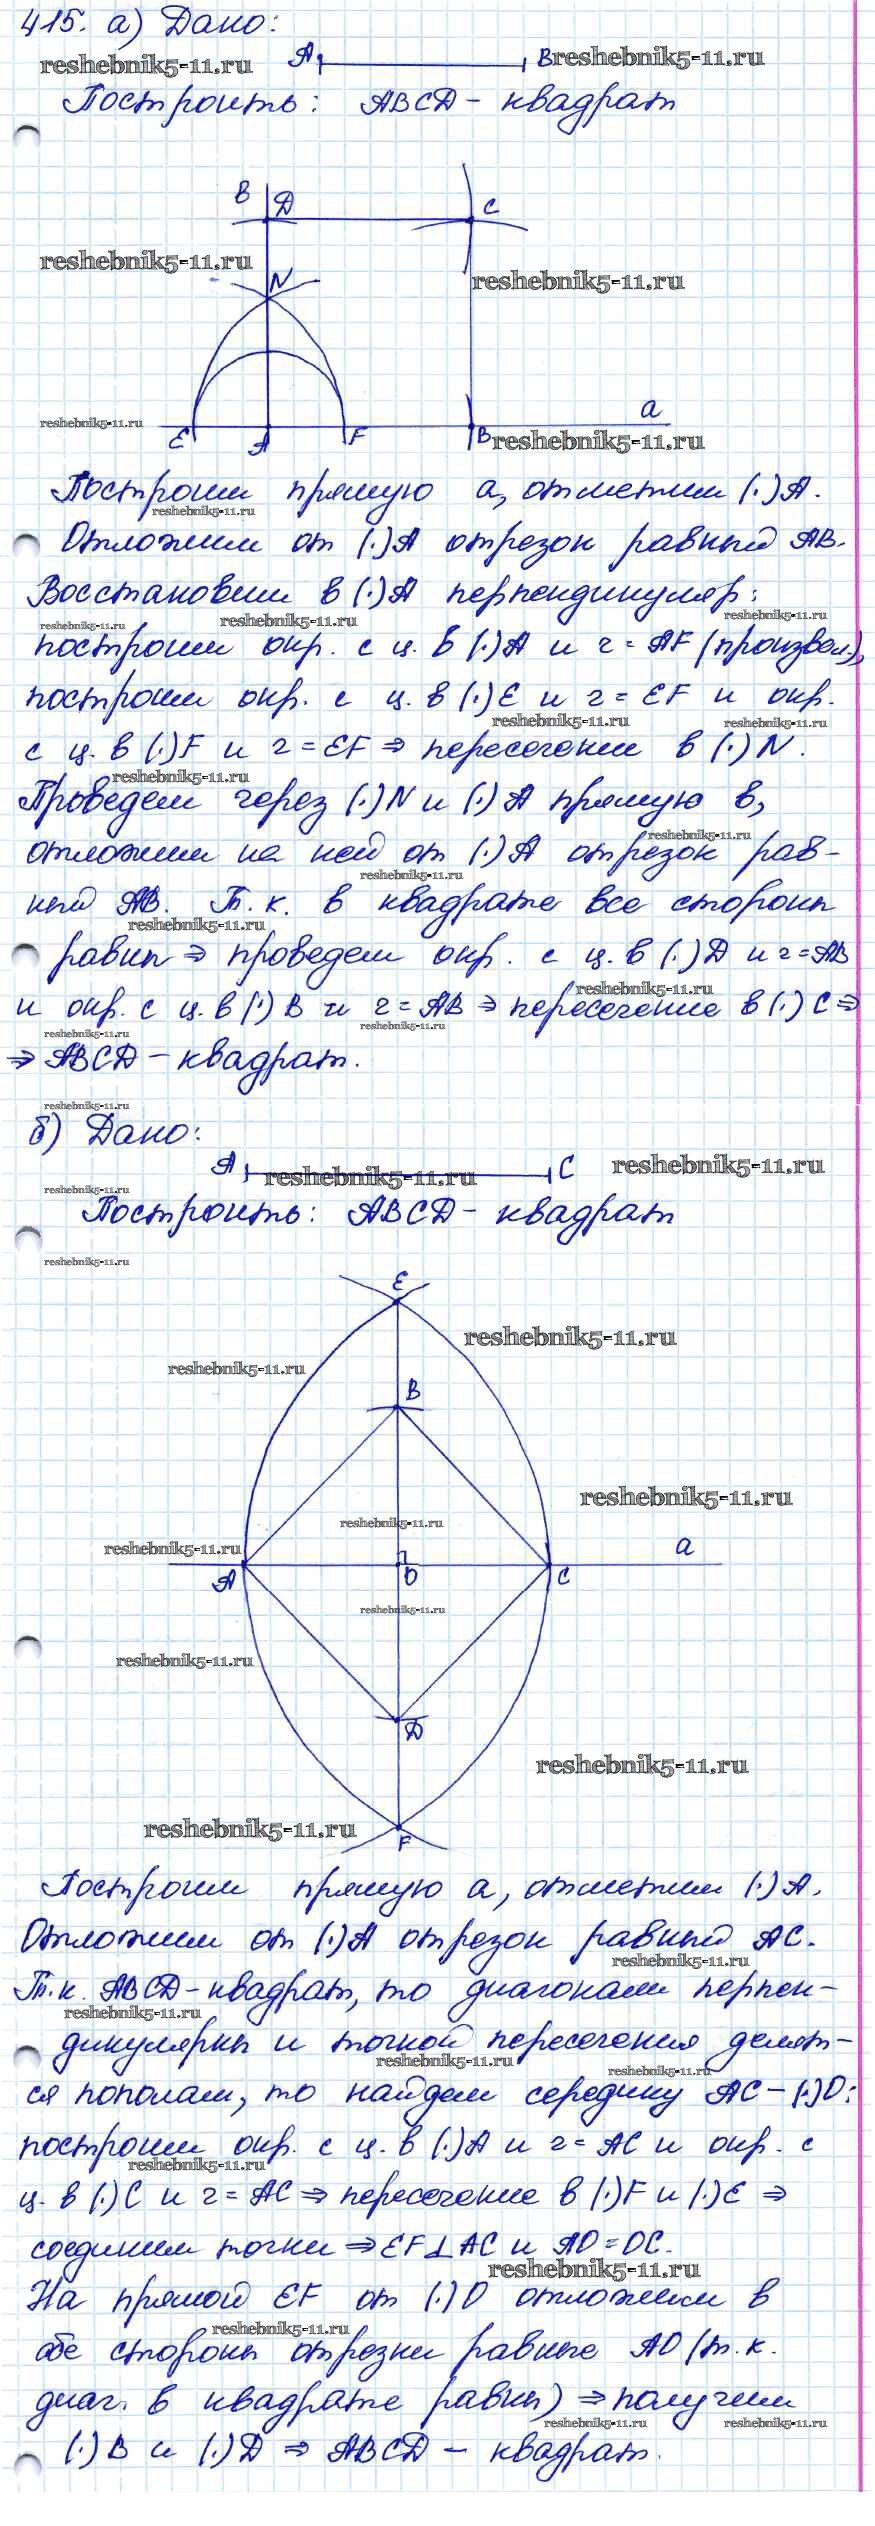 415. а) Дано:
A B
reshebnik5-11.ru reshebnik5-11.ru
Построить: ABCD - квадрат
в D C
reshebnik5-11.ru
N
reshebnik5-11.ru
a
reshebnik5-11.ru
E A F B
reshebnik5-11.ru
Построим прямую a, отметим (·)A.
reshebnik5-11.ru
Отложим от (·)A отрезок равный AB.
Восстановим в (·)A перпендикуляр:
reshebnik5-11.ru reshebnik5-11.ru reshebnik5-11.ru
построим окр. с ц. в (·)A и r = AF (произвол.),
построим окр. с ц. в (·)E и r = EF и окр.
reshebnik5-11.ru reshebnik5-11.ru
с ц. в (·)F и r = EF ⇒ пересечении в (·) N.
reshebnik5-11.ru
Проведем через (·)N и (·)A прямую в,
reshebnik5-11.ru
отложим на ней от (·)A отрезок рав-
reshebnik5-11.ru
ный AB. Т.к. в квадрате все стороны
reshebnik5-11.ru
равны ⇒ проведем окр. с ц. в (·)D и r = AB
reshebnik5-11.ru
и окр. с ц. в (·) B и r = AB ⇒ пересечение в (·) C ⇒
reshebnik5-11.ru reshebnik5-11.ru
⇒ ABCD - квадрат.
reshebnik5-11.ru
б) Дано:
A C
reshebnik5-11.ru reshebnik5-11.ru
reshebnik5-11.ru
Построить: ABCD - квадрат
reshebnik5-11.ru
E
reshebnik5-11.ru
reshebnik5-11.ru
B
reshebnik5-11.ru
reshebnik5-11.ru
reshebnik5-11.ru
a
A O C
reshebnik5-11.ru
reshebnik5-11.ru
D
reshebnik5-11.ru
reshebnik5-11.ru
F
Построим прямую a, отметим (·)A.
Отложим от (·)A отрезок равный AC.
reshebnik5-11.ru
Т.к. ABCD - квадрат, то диагонали перпен-
reshebnik5-11.ru
дикулярны и точкой пересечения делят-
reshebnik5-11.ru reshebnik5-11.ru
ся пополам, то найдем середину AC - (·)O:
построим окр. с ц. в (·)A и r = AC и окр. с
reshebnik5-11.ru
ц. в (·)C и r = AC ⇒ пересечение в (·)F и (·)E ⇒
соединим точки ⇒ EF⊥AC и AO = OC.
reshebnik5-11.ru
На прямой EF от (·)O отложим в
reshebnik5-11.ru
обе стороны отрезки равные AO (т.к.
диаг. в квадрате равны) ⇒ получим
reshebnik5-11.ru reshebnik5-11.ru
(·)B и (·)D ⇒ ABCD - квадрат.